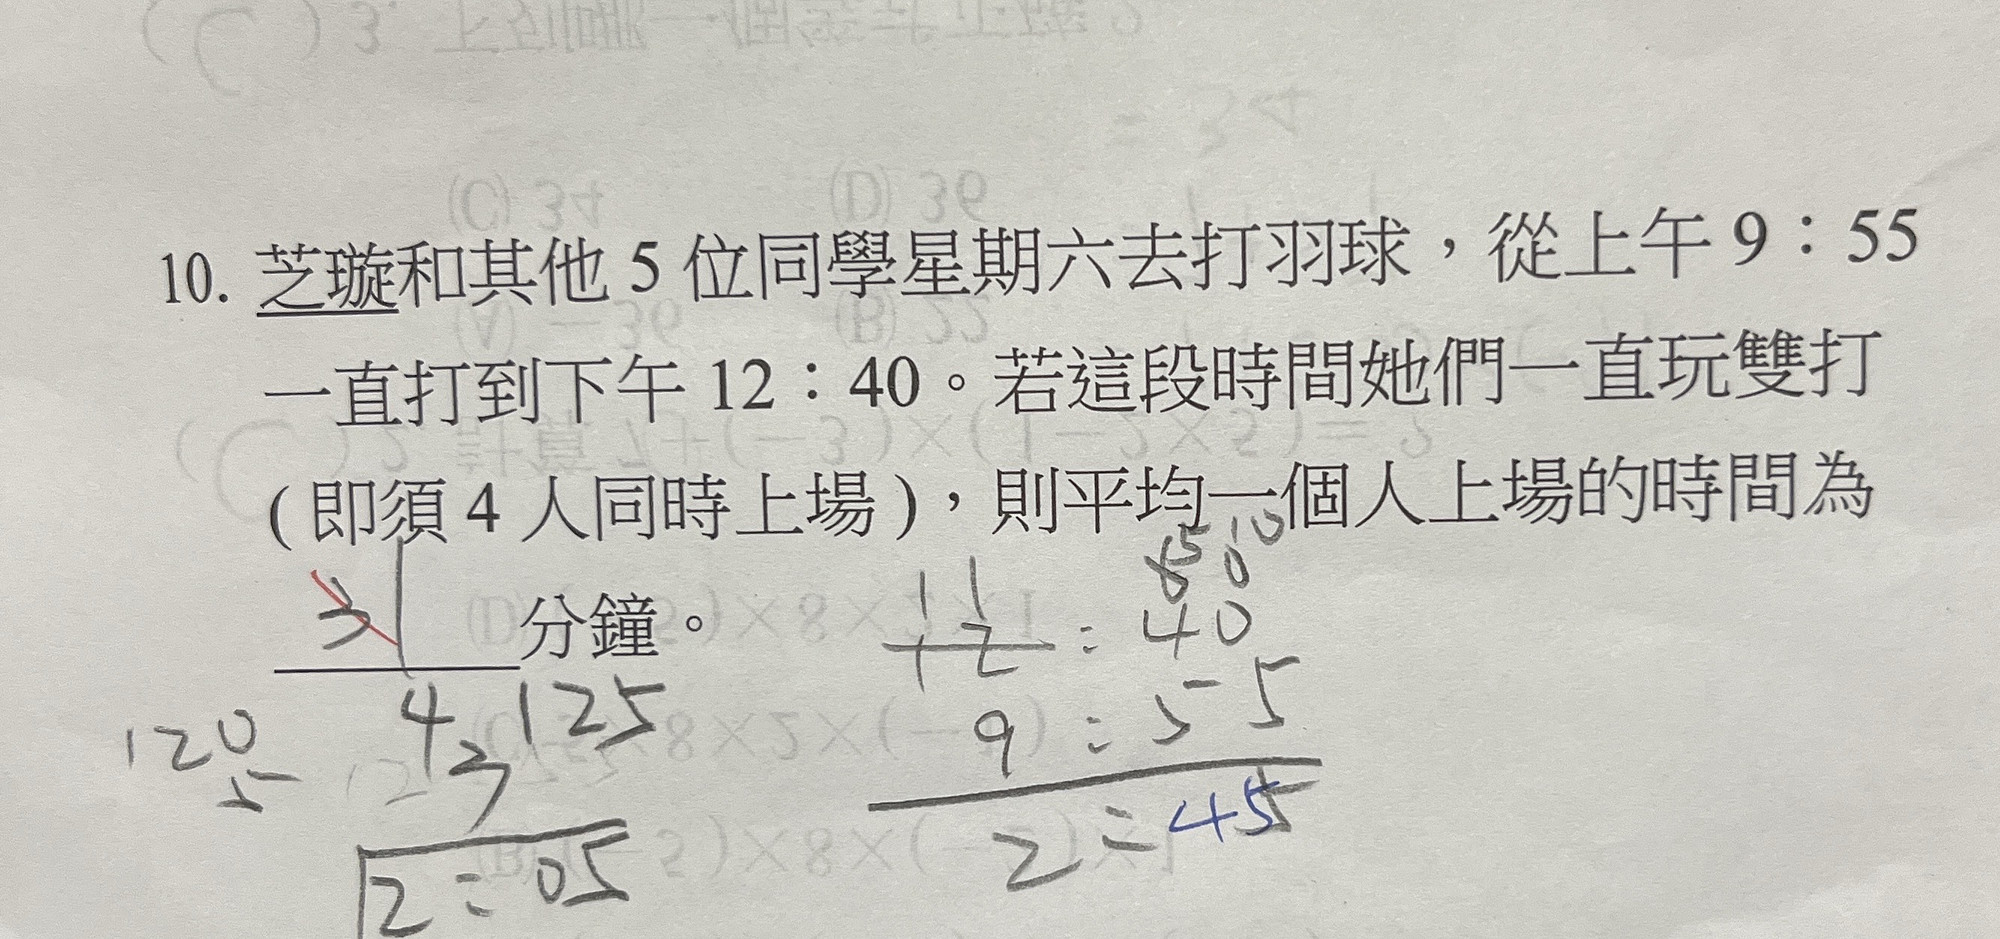 10. 芝璇和其他 5 位同學星期六去打羽球，從上午 9：55
一直打到下午 12：40。若這段時間她們一直玩雙打
（即須 4 人同時上場），則平均一個人上場的時間為
31 分鐘。
11
12 : 40
9 : 55
2 : 45
120
5
4
125
2 : 05